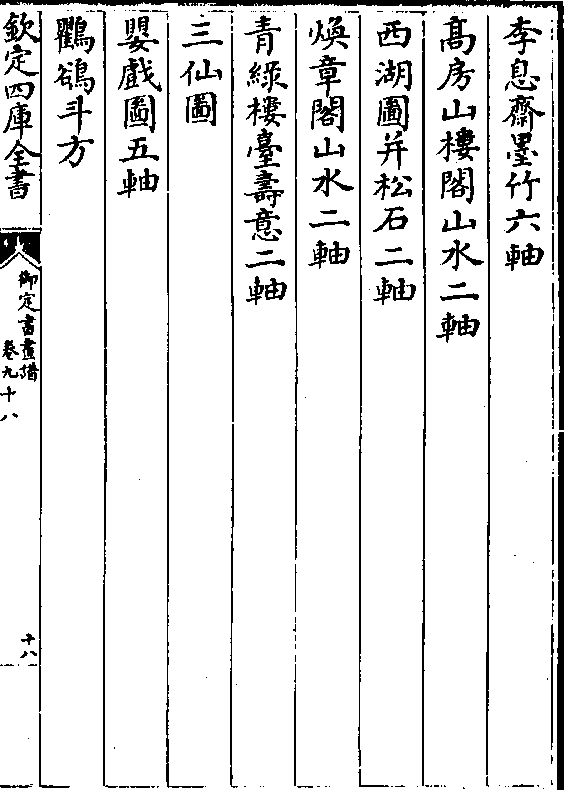 李息齋墨竹六軸
髙房山樓閣山水二軸
西湖圖并松石二軸
煥章閣山水二軸
青綠樓臺壽意二軸
三仙圖
嬰戲圖五軸
鸜鵒斗方
欽定四庫全書
御定書畫譜
卷九十八
十八